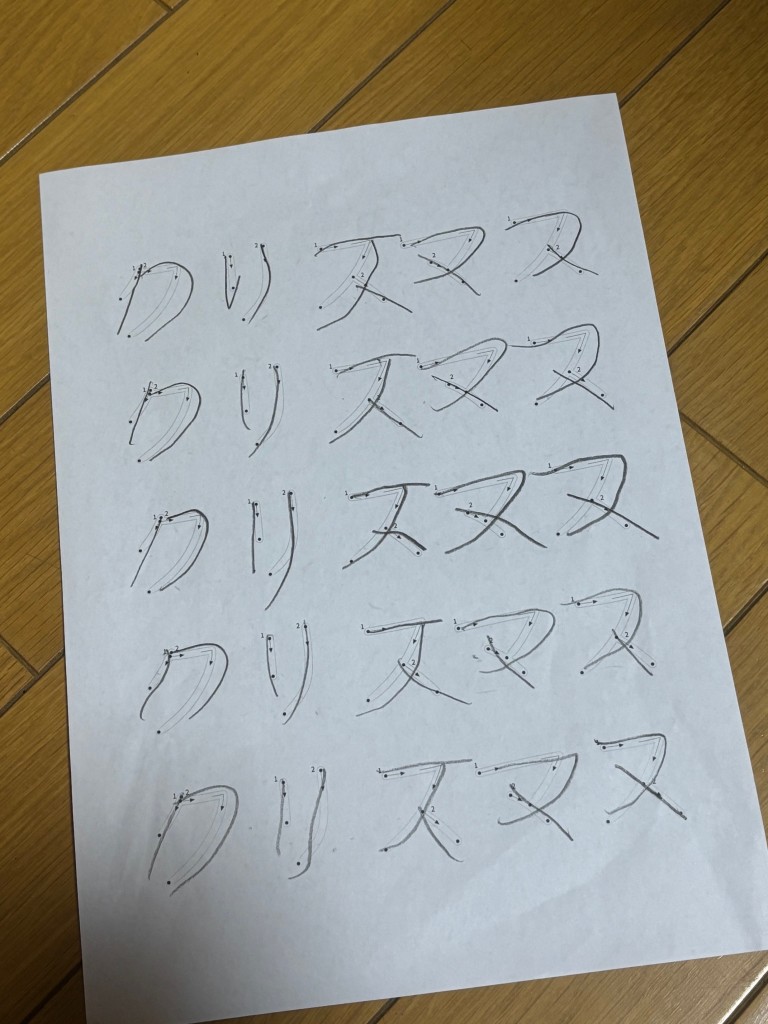 クリスマス
クリスマス
クリスマス
クリスマス
クリスマス